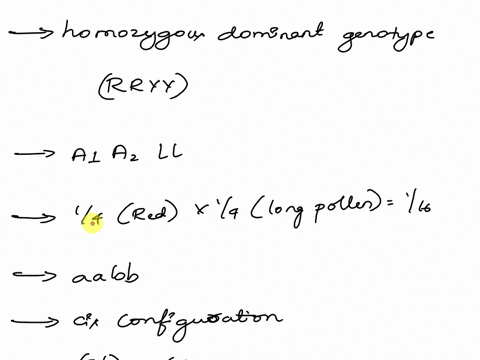 → homozygous dominant genotype
(RRYY)
→ A1 A2 LL
→ 1/4 (Red) × 1/4 (long pollen) = 1/16
→ aabb
→ cis configuration